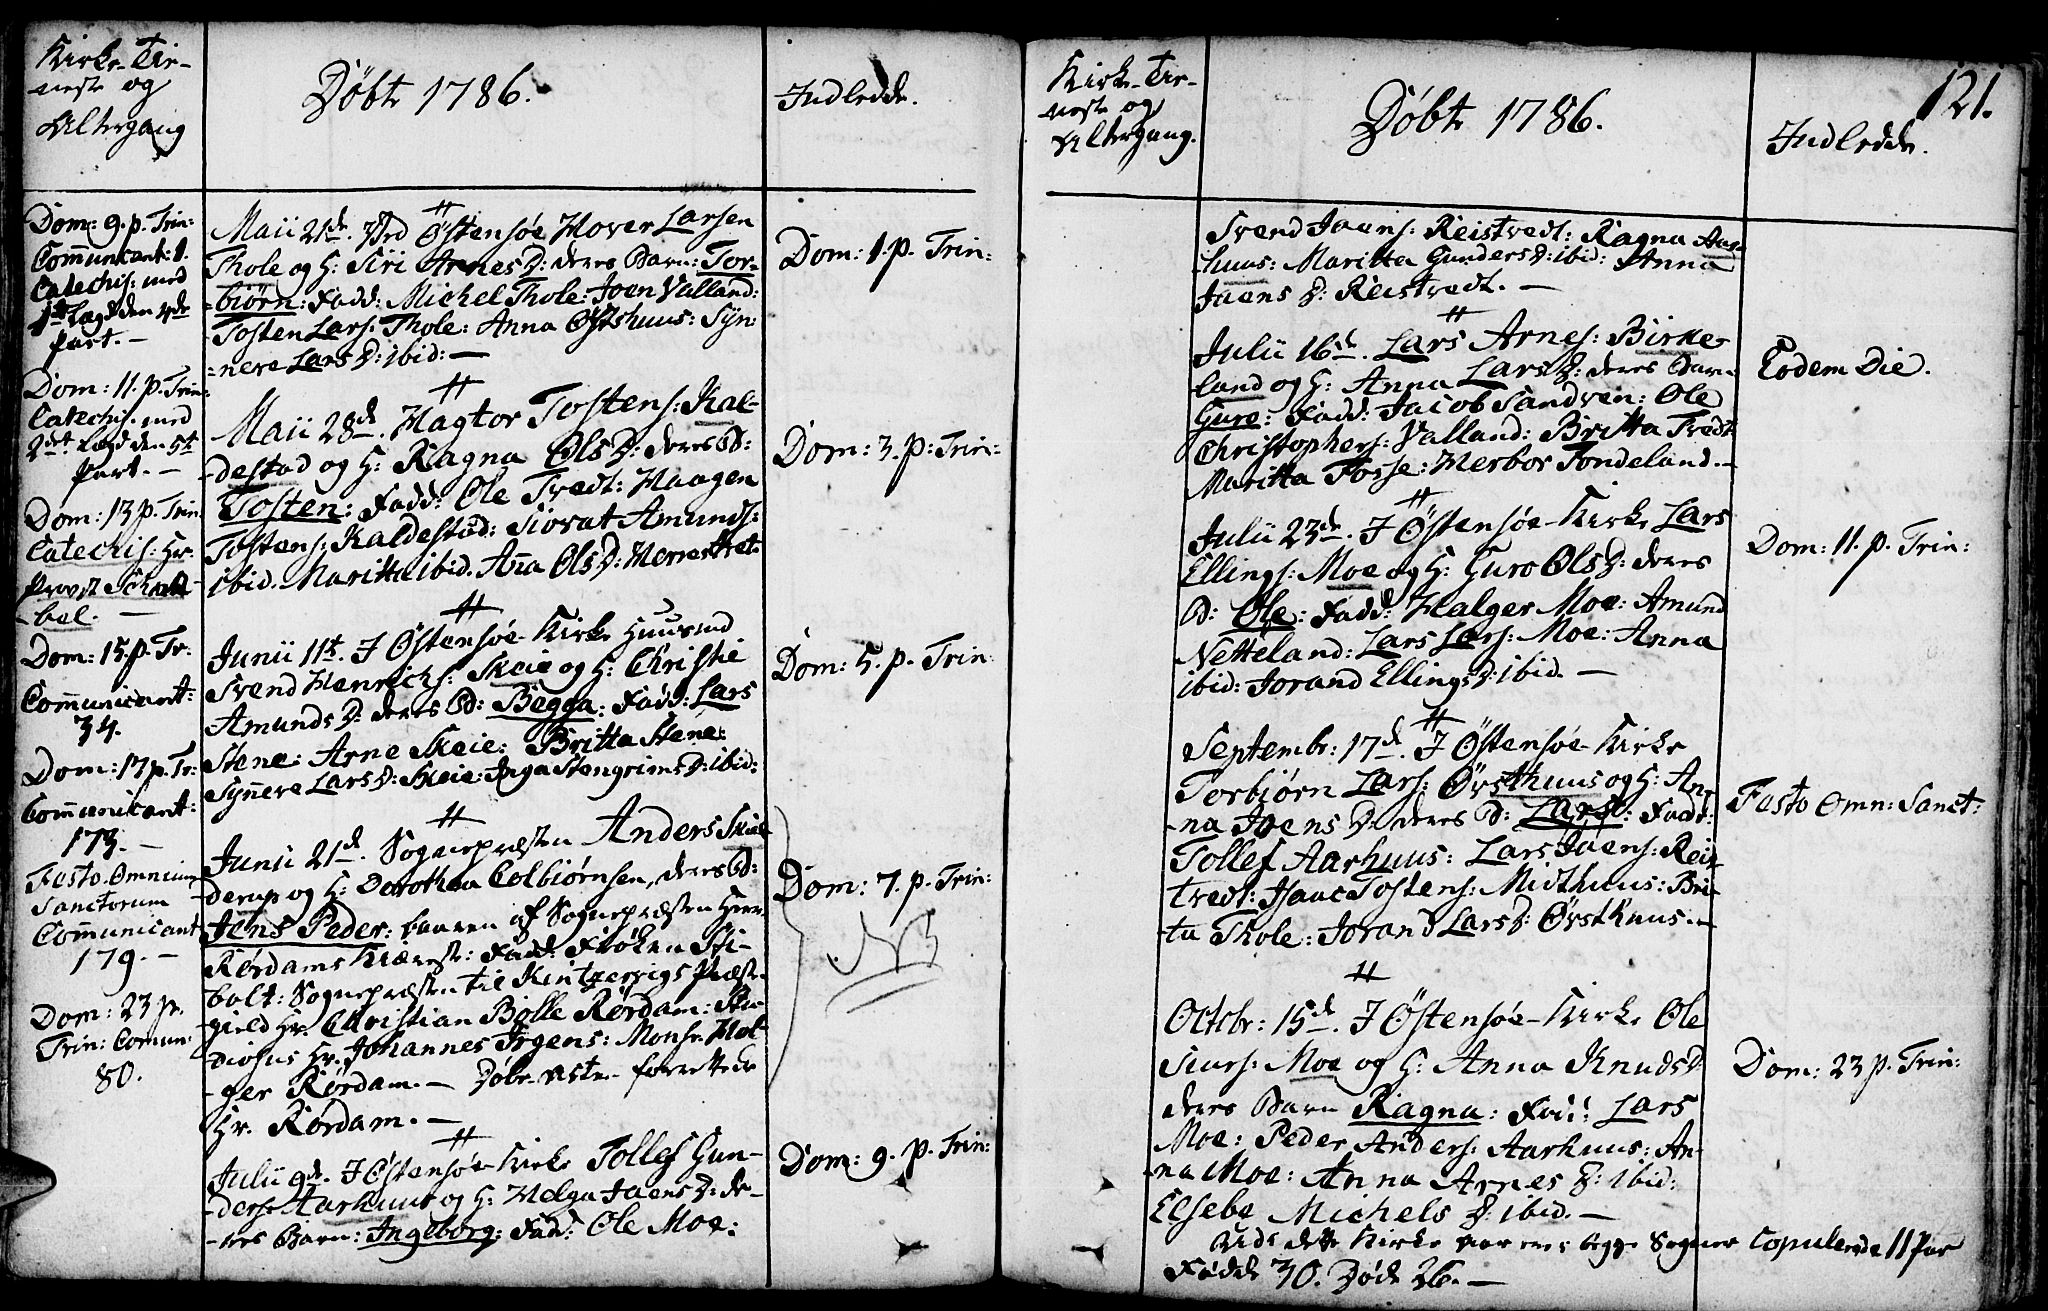 Kirke-Tie-
neste og
Altergang
Døbte 1786.
Indledde.
Dom: 9. p. Trin:
Com̄unicant: 1.
Catechis: med
1ste Lægd den 4de
part. —
Dom: 11. p. Trin:
Catechis. med
2det Lægd den 5te
Part. —
Dom: 13 p. Trin
Catechis: Hr.
Provst Schnab-
bel. —
Dom: 15. p. Tr:
Com̄unicant:
34.
Dom: 17 p. Tr:
Com̄unicant:
173. —
Festo Omnium
Sanctorum
Comunicant
179. —
Dom: 23 p.
Trin: Comun:
80.
Maii 21de. Ved Østensøe Hover Larsen
Thole og H: Siri Arnes D: deres Barn: Tor-
-biørn: Fadd: Michel Thole: Joen Valland:
Tosten Lars: Thole: Anna Østhuus: Syn-
-nere Lars D: ibid: —
Maii 28de. Hagtor Tostens: Kal-
-destad og H: Ragna Ols D: deres B:
Tosten: Fadd: Ole Tvedt: Haagen
Tostens: Kaldestad: Siovat Amunds:
ibid. Maritta ibid. Anna Ols D:
Junii 11te. I Østensøe-Kirke Huusmd
Svend Henrichs: Skeie og H: Christie
Amunds D: deres B: Begga: Fadd: Lars
Stene: Arne Skeie: Britta Stene:
Synnere Lars D: Skeie: Inga Stengrims D: ibid:
Junii 21de. Sognepræsten Anders Skiel-
derup og H: Dorothea Colbiørnsen, deres B:
Jens Peder: baaren af Sognepræsten Herr
Rørdams Kiæreste: Fadd: Frøken Sti-
bolt: Sognepræsten til Kintzervigs Præste-
gield Hr. Christian Bølle Rørdam: Stu-
diosus Hr. Johannes Irgens: Monsr. Hol-
-ger Rørdam. — Døbe-neste forrettede
Hr. Rørdam. —
Julii 9de. I Østensøe-Kirke Tollef Gun-
-ders: Aarhuus og H: Helga Jaens D: de-
-res Barn: Ingeborg: Fad: Ole Moe:
Dom: 1. p. Trin:
Dom: 3. p: Trin:
Dom: 5. p. Trin:
Dom: 7. p. Trin:
NB
Dom: 9. p. Trin:
Kirke-Tie-
neste og
Altergang.
Døbte 1786.
121.
Indledde.
Svend Jaens: Reistvedt: Ragna Aar-
huus: Maritta Gunders D: ibid: Anna
Jaens D: Reistvedt. —
Julii 16de. Lars Arnes: Birke-
-land og H: Anna Lars D: deres Barn
Gure: Fadd: Jacob Sandven: Ole
Christophers: Valland: Britta Tvedt
Maritta Fosse: Herbor Tondeland. —
Julii 23de. I Østensøe-Kirke Lars
Ellings: Moe og H: Guro Ols D: deres
B: Ole: Fadd: Halger Moe: Amund
Netteland: Lars Lars: Moe: Anna
ibid: Jorand Ellings D: ibid. —
Septembr: 17de. I Østensøe Kirke
Torbiørn Lars: Øvsthuus og H: An-
-na Joens D: deres B: Lars: Fadd:
Tollef Aarhuus: Lars Jaens: Reis-
tvedt: Isaac Tostens: Midthuus: Bri-
-ta Thole: Jorand Lars D: Øvsthuus. —
Octobr: 15de. I Østensøe-Kirke Ole
Siurs: Moe og H: Anna Knuds D.
deres Barn Ragna: Fad: Lars
Moe: Peder Anders: Aarhuus: An-
-na Moe: Anna Arnes D: ibid:
Elsebe Michels D: ibid. —
Vide dette Kirke aar ere begge Sogner Copulerede 11 Par
Fødde 30. Døde 26. —
Eodem Die.
Dom: 11. p. Trin:
Festo Omn: Sanct:
Dom: 23 p. Trin: